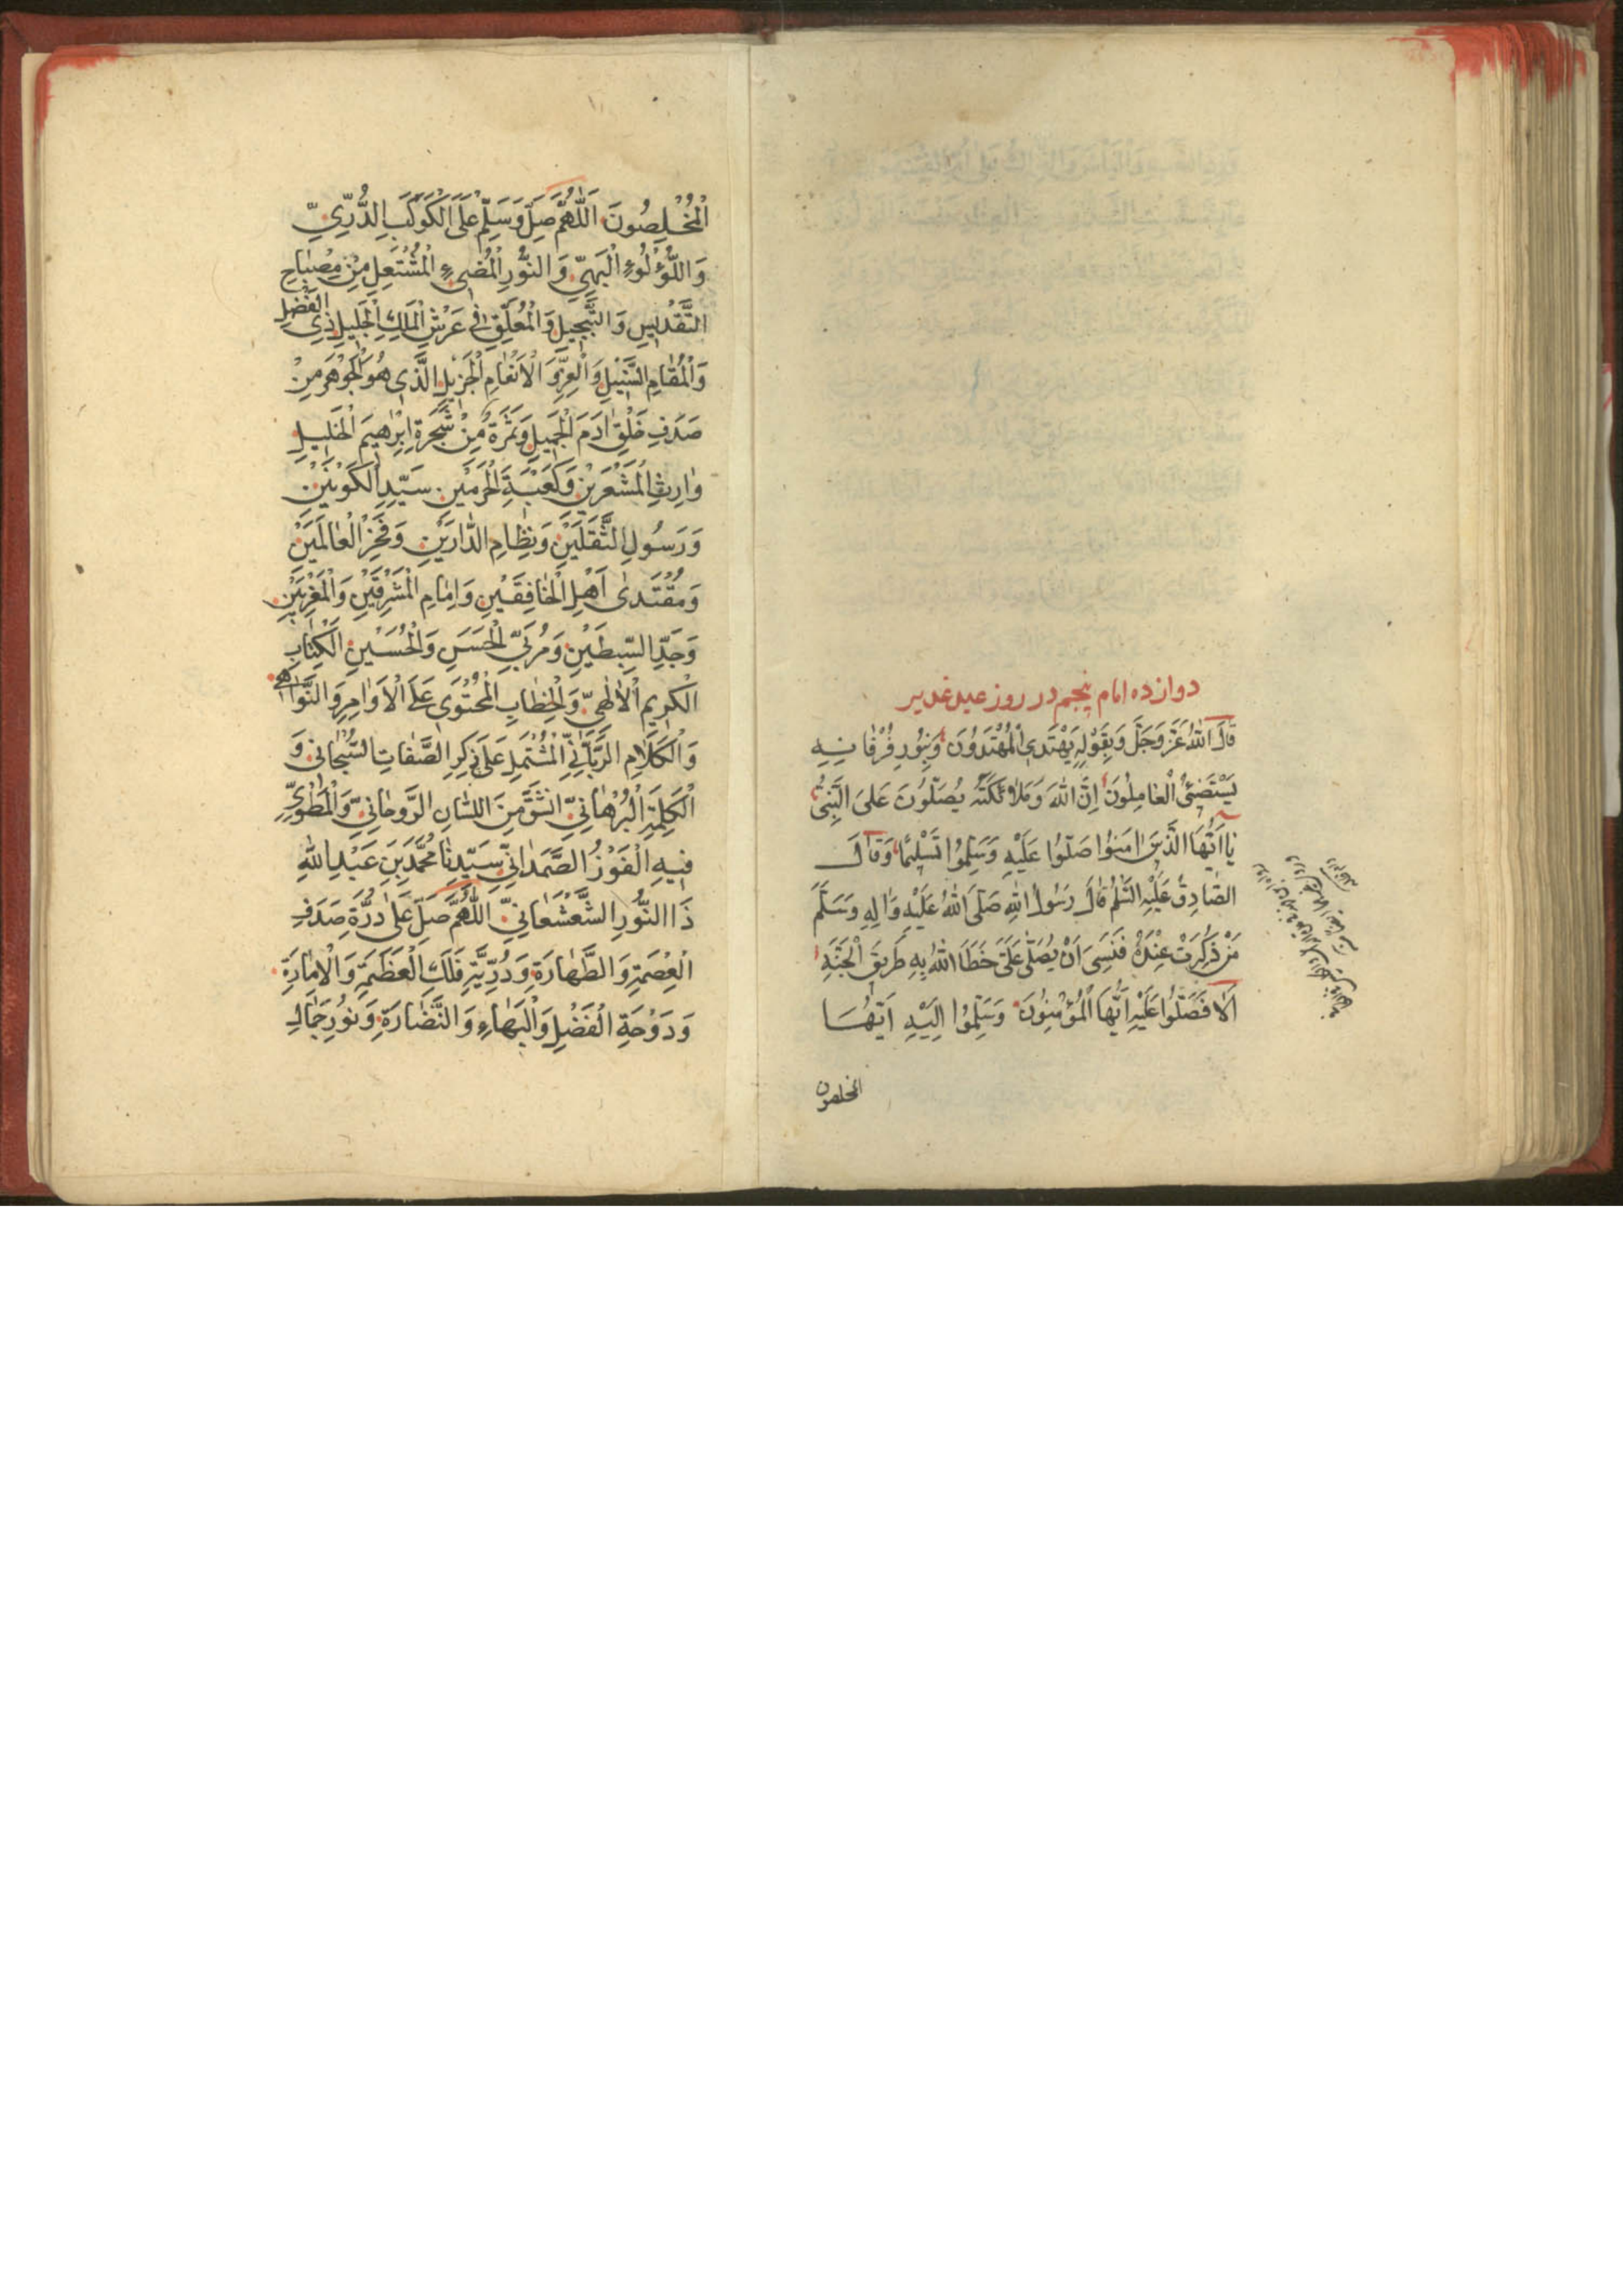 دوازده امام پنجم در روز عید غدیر
قَالَ اللهُ عَزَّ وَجَلَّ وَبِقَوْلِهِ یَهْتَدِی الْمُهْتَدُوُنَ وَبِنُورِ فُرْقٰانِهِ
یَسْتَضِیئُ الْعٰامِلُونَ اِنَّ اللهَ وَمَلٰائِکَتَهُ یُصَلُّونَ عَلَی النَّبِیِّ
یٰا اَیُّهَا الَّذینَ اٰمَنوُا صَلُّوا عَلَیْهِ وَسَلِّمُوا تَسْلیمًا وَقٰالَ
الصّٰادِقُ عَلَیْهِ السَّلٰمُ قٰالَ رَسُولُ اللهِ صَلَّی اللهُ عَلَیْهِ وَاٰلِهِ وَسَلَّمَ
مَنْ ذُکِرْتُ عِنْدَهُ فَنَسِیَ اَنْ یُصَلّٰی عَلَیَّ خَطَأَ اللهُ بِهِ طَرِیقَ الْجَنَّةِ
اَلٰا فَصَلُّوا عَلَیْهِ اَیُّهَا الْمُؤْمِنُونَ وَسَلِّمُوا اِلَیْهِ اَیُّهَا
المخلصون
الْمُخْلِصُونَ اَللّٰهُمَّ صَلِّ وَسَلِّمْ عَلَی الْکَوْکَبِ الدُّرِّیِّ
وَاللُّؤْلُوءِ الْبَهِیِّ وَالنُّورِ الْمُضیءِ الْمُشْتَعِلِ مِنْ مِصْبٰاحِ
التَّقْدیسِ وَالتَّبْجیلِ وَالْمُعَلَّقِ فی عَرْشِ الْمَلِکِ الْجَلیلِ ذِی الْفَضْلِ
وَالْمُقٰامِ النَّبیلِ وَالْعِزِّ وَ الْاَنْعٰامِ الْجَزیلِ الَّذی هُوَ الْجَوْهَرُ مِنْ
صَدَفِ خَلْقِ اٰدَمَ الْجَمیلِ وَثَمَرَةٌ مِنْ شَجَرَةِ اِبْرٰاهیمَ الْخَلیلِ
وٰارِثِ الْمَشْعَرَیْنِ وَکَعْبَةِ الْحَرَمَیْنِ سَیِّدِ الْکَوْنَیْنِ
وَرَسُولِ الثَّقَلَیْنِ وَنِظٰامِ الدّٰارَیْنِ وَفَخْرِ الْعٰالَمَیْنِ
وَمُقْتَدیٰ اَهْلِ الْخٰافِقَیْنِ وَاِمٰامِ الْمَشْرِقَیْنِ وَالْمَغْرِبَیْنِ
وَجَدِّ السِّبطَیْنِ وَمُرَبِّی الْحَسَنِ وَالْحُسَیْنِ الْکِتٰابِ
الْکَریمِ الْاِلٰهِیِّ وَالْخِطٰابِ الْمُحْتَوی عَلَی الْاَوٰامِرِ وَالنَّوٰاهی
وَالْکَلٰامِ الرَّبّٰانِیِّ الْمُشْتَمِلِ عَلیٰ ذِکْرِ الصِّفٰاتِ السُّبْحٰانی وَ
الْکَلِمَةِ الْبُرْهٰانِیِّ مِنَ اللِّسٰانِ الرَّوحٰانِیِّ وَالْمَطْوِیِّ
فیهِ الْفَوْزُ الصَّمَدٰانِیِّ سَیِّدِنٰا مُحَمَّدِ بْنِ عَبْدِ اللهِ
ذَا النُّورِ الشَّعْشَعٰانِیِّ اَللّٰهُمَّ صَلِّ عَلیٰ دُرَّةِ صَدَفِ
الْعِصْمَةِ وَالطَّهٰارَةِ وَدُرِّیَّةِ فَلَکِ الْعَظَمَةِ وَالْاِمٰارَةِ
وَدَوْحَةِ الْفَضْلِ وَالْبَهٰاءِ وَالنَّضٰارَةِ وَنُورِ جَمٰالِ